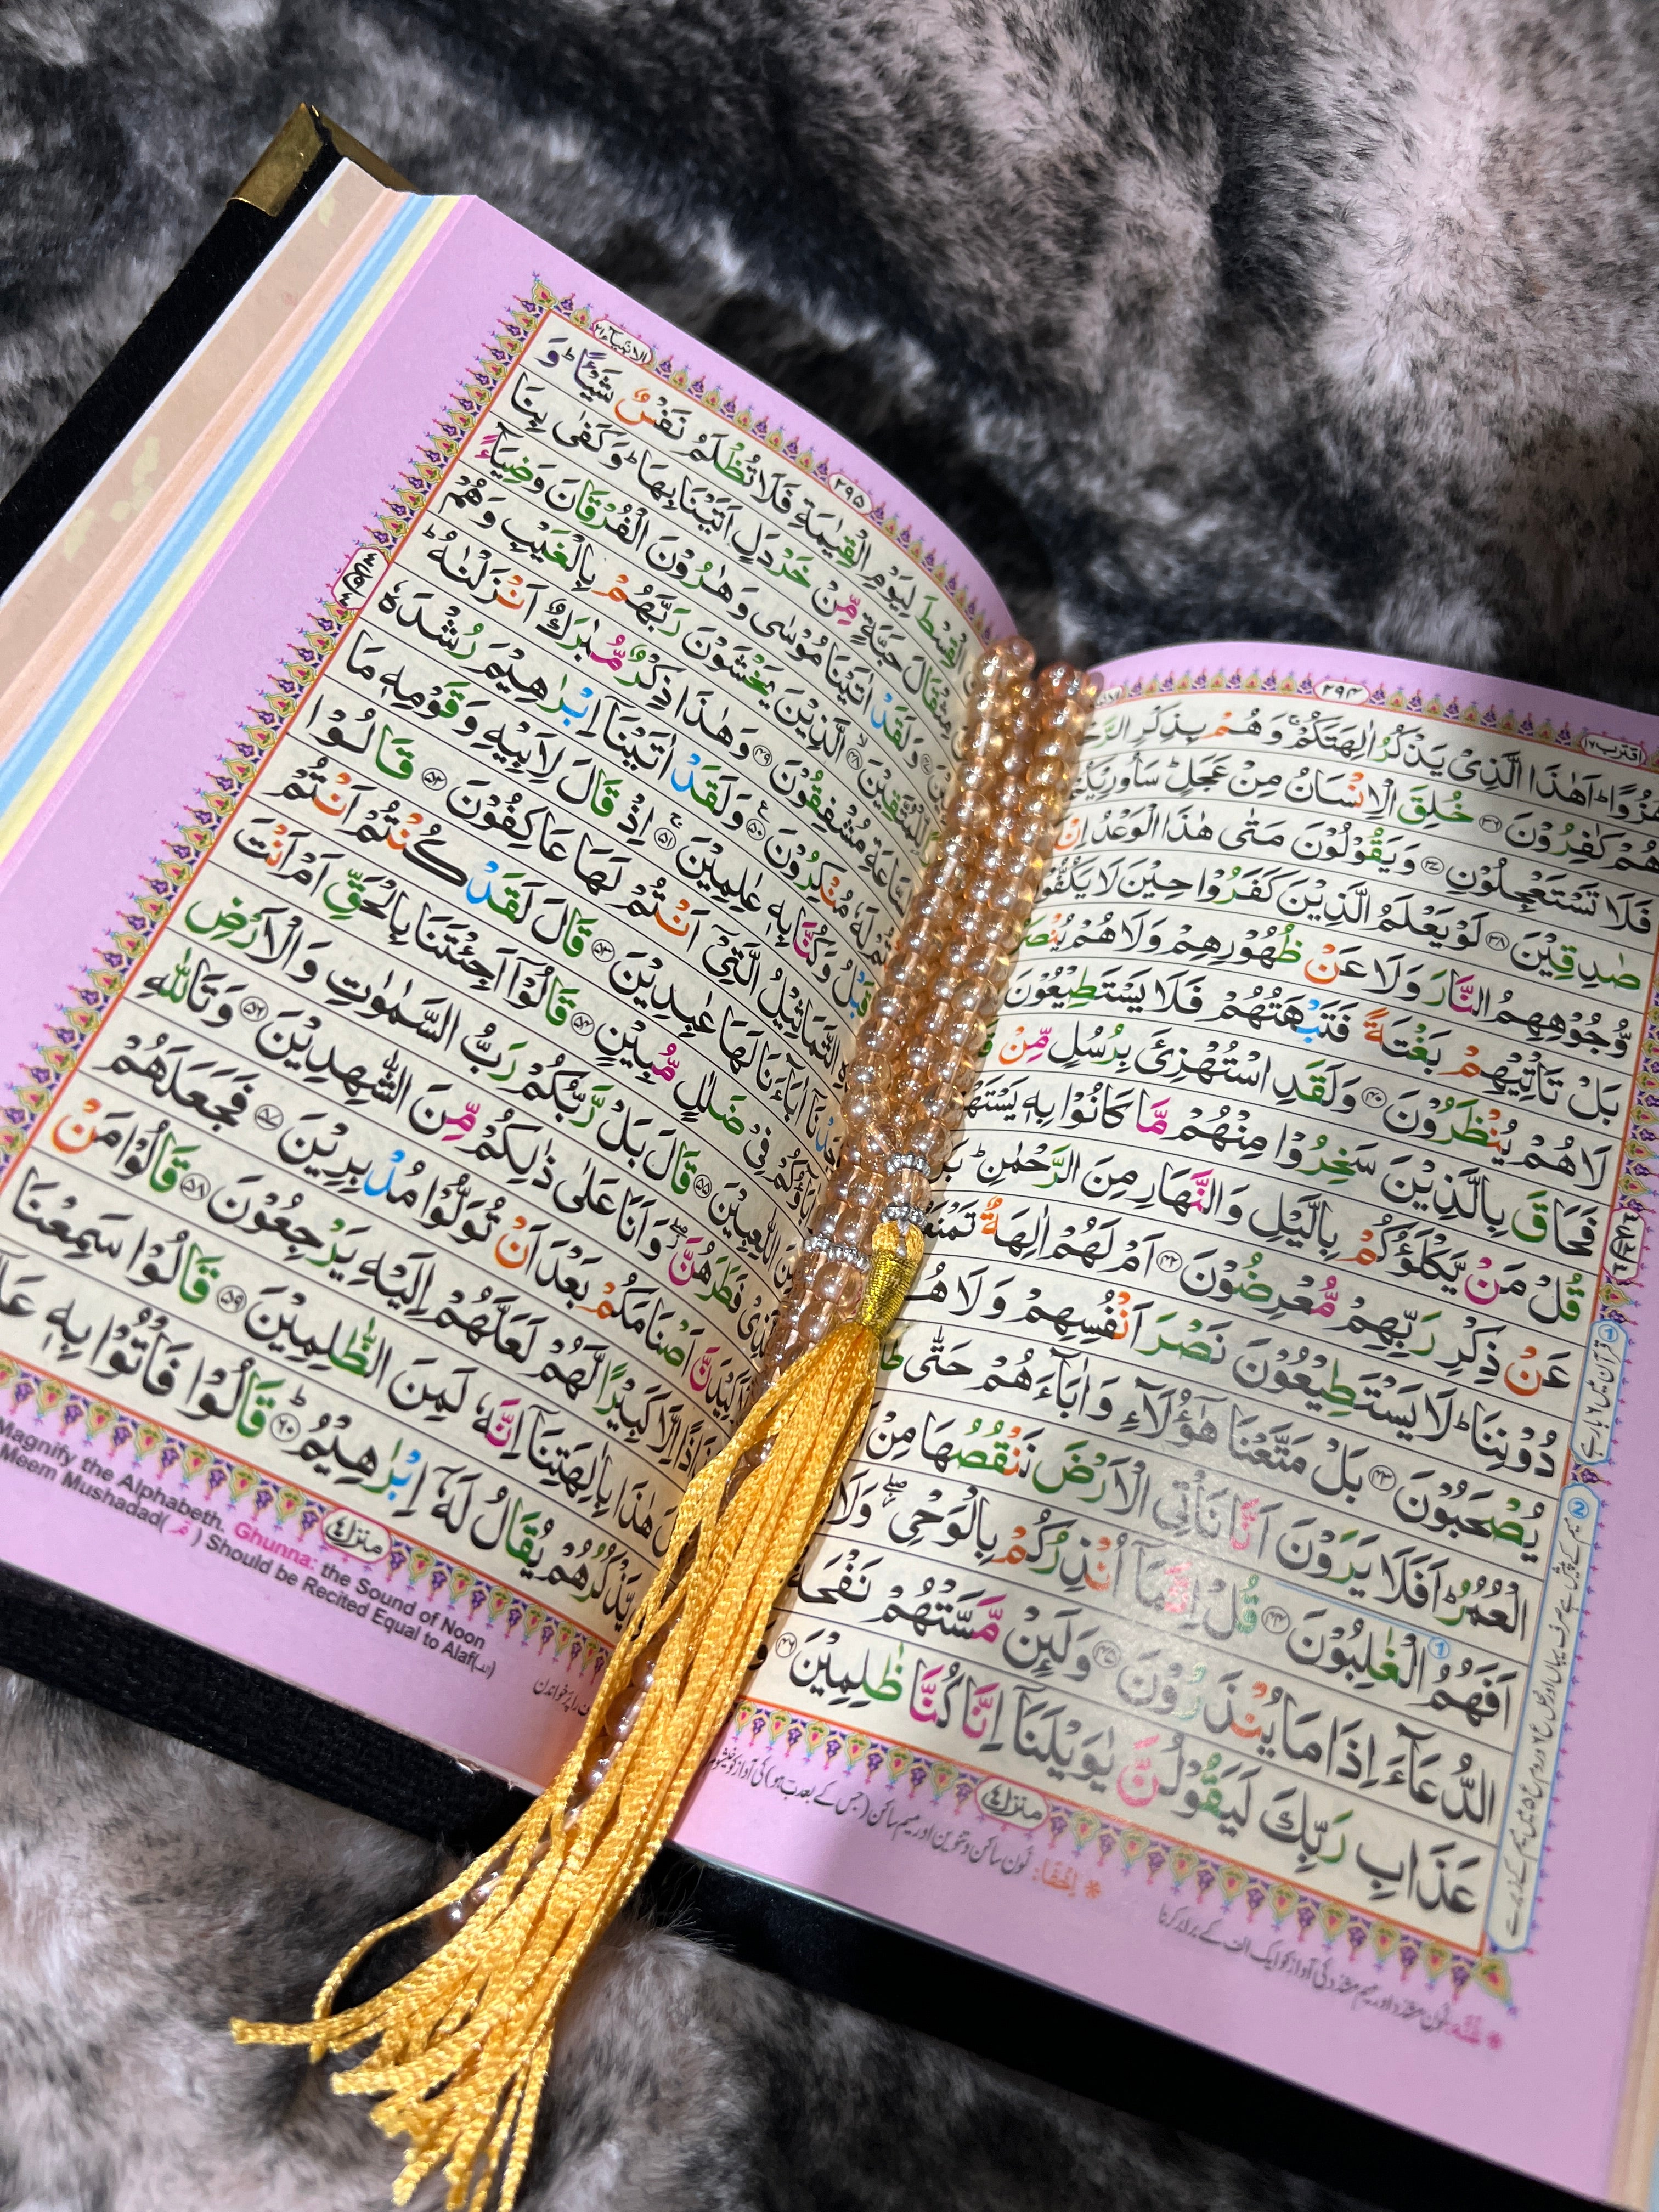 اقترب ١٧
٢٩٤
هُزُوًا ؕ اَهٰذَا الَّذِیْ یَذْكُرُ اٰلِهَتَكُمْ ۚ وَهُمْ بِذِكْرِ
هُمْ كٰفِرُوْنَ ۝۳۶ خُلِقَ الْاِنْسَانُ مِنْ عَجَلٍ ؕ سَاُورِیْكُمْ
فَلَا تَسْتَعْجِلُوْنِ ۝۳۷ وَیَقُوْلُوْنَ مَتٰی هٰذَا الْوَعْدُ اِنْ
صٰدِقِیْنَ ۝۳۸ لَوْ یَعْلَمُ الَّذِیْنَ كَفَرُوْا حِیْنَ لَا یَكُفُّوْنَ
وُّجُوْهِهِمُ النَّارَ وَلَا عَنْ ظُهُوْرِهِمْ وَلَا هُمْ
بَلْ تَاْتِیْهِمْ بَغْتَةً فَتَبْهَتُهُمْ فَلَا یَسْتَطِیْعُوْنَ
لَا هُمْ یُنْظَرُوْنَ ۝۴۰ وَلَقَدِ اسْتُهْزِئَ بِرُسُلٍ مِّنْ
فَحَاقَ بِالَّذِیْنَ سَخِرُوْا مِنْهُمْ مَّا كَانُوْا بِهٖ
قُلْ مَنْ یَّكْلَؤُكُمْ بِالَّیْلِ وَالنَّهَارِ مِنَ الرَّحْمٰنِ ؕ
عَنْ ذِكْرِ رَبِّهِمْ مُّعْرِضُوْنَ ۝۴۲ اَمْ لَهُمْ اٰلِهَةٌ
دُوْنِنَا ؕ لَا یَسْتَطِیْعُوْنَ نَصْرَ اَنْفُسِهِمْ وَلَا
یُصْحَبُوْنَ ۝۴۳ بَلْ مَتَّعْنَا هٰۤؤُلَآءِ وَاٰبَآءَهُمْ حَتّٰی
الْعُمُرُ ؕ اَفَلَا یَرَوْنَ اَنَّا نَاْتِی الْاَرْضَ نَنْقُصُهَا مِنْ
اَفَهُمُ الْغٰلِبُوْنَ ۝۴۴ قُلْ اِنَّمَاۤ اُنْذِرُكُمْ بِالْوَحْیِ ۖ وَلَا
الدُّعَآءَ اِذَا مَا یُنْذَرُوْنَ ۝۴۵ وَلَىِٕنْ مَّسَّتْهُمْ نَفْحَةٌ
عَذَابِ رَبِّكَ لَیَقُوْلُنَّ یٰوَیْلَنَاۤ اِنَّا كُنَّا ظٰلِمِیْنَ ۝۴۶
منزل ٤
الانبیآء ٢١
٢٩٥
الْقِسْطَ لِیَوْمِ الْقِیٰمَةِ فَلَا تُظْلَمُ نَفْسٌ شَیْـًٔا ؕ وَ
مِثْقَالَ حَبَّةٍ مِّنْ خَرْدَلٍ اَتَیْنَا بِهَا ؕ وَكَفٰی بِنَا
وَلَقَدْ اٰتَیْنَا مُوْسٰی وَهٰرُوْنَ الْفُرْقَانَ وَضِیَآءً
لِّلْمُتَّقِیْنَ ۝۴۸ الَّذِیْنَ یَخْشَوْنَ رَبَّهُمْ بِالْغَیْبِ وَهُمْ
مُشْفِقُوْنَ ۝۴۹ وَهٰذَا ذِكْرٌ مُّبٰرَكٌ اَنْزَلْنٰهُ ؕ
لَهٗ مُنْكِرُوْنَ ۝۵۰ وَلَقَدْ اٰتَیْنَاۤ اِبْرٰهِیْمَ رُشْدَهٗ
قَبْلُ وَكُنَّا بِهٖ عٰلِمِیْنَ ۝۵۱ اِذْ قَالَ لِاَبِیْهِ وَقَوْمِهٖ مَا
التَّمَاثِیْلُ الَّتِیْۤ اَنْتُمْ لَهَا عَاكِفُوْنَ ۝۵۲ قَالُوْا
اٰبَآءَنَا لَهَا عٰبِدِیْنَ ۝۵۳ قَالَ لَقَدْ كُنْتُمْ اَنْتُمْ
فِیْ ضَلٰلٍ مُّبِیْنٍ ۝۵۴ قَالُوْۤا اَجِئْتَنَا بِالْحَقِّ اَمْ اَنْتَ
اللّٰعِبِیْنَ ۝۵۵ قَالَ بَلْ رَّبُّكُمْ رَبُّ السَّمٰوٰتِ وَالْاَرْضِ
فَطَرَهُنَّ ۖ وَاَنَا عَلٰی ذٰلِكُمْ مِّنَ الشّٰهِدِیْنَ ۝۵۶ وَتَاللّٰهِ
اَصْنَامَكُمْ بَعْدَ اَنْ تُوَلُّوْا مُدْبِرِیْنَ ۝۵۷ فَجَعَلَهُمْ
جُذٰذًا اِلَّا كَبِیْرًا لَّهُمْ لَعَلَّهُمْ اِلَیْهِ یَرْجِعُوْنَ ۝۵۸ قَالُوْا مَنْ
هٰذَا بِاٰلِهَتِنَاۤ اِنَّهٗ لَمِنَ الظّٰلِمِیْنَ ۝۵۹ قَالُوْا سَمِعْنَا
یَّذْكُرُهُمْ یُقَالُ لَهٗۤ اِبْرٰهِیْمُ ؕ ۝۶۰ قَالُوْا فَاْتُوْا بِهٖ
منزل ٤
Magnify the Alphabeth. Ghunna: the Sound of Noon
Meem Mushadad( مّ ) Should be Recited Equal to Alaf(الف)